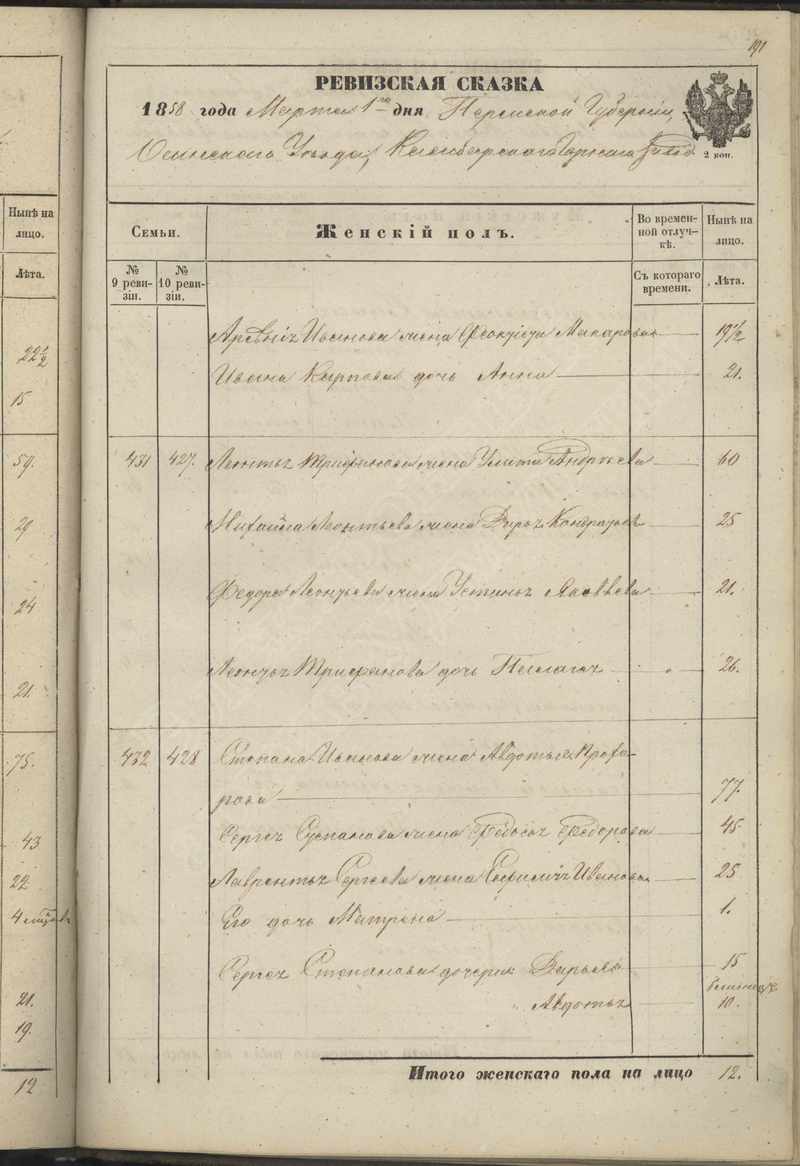 191
РЕВИЗСКАЯ СКАЗКА
1858 года Марта 1го дня Пермской Губерніи,
Осинскаго Уѣзда,
2 коп.
Нынѣ на лицо.
Лѣта.
22 1/2
15
59.
29
24
21.
75.
43
22
4 мѣсяцъ
21.
19.
12
Семьи.
Женскій полъ.
Во времен-
ной отлуч-
кѣ.
Нынѣ на
лицо.
№ 9 реви-
зіи.
№ 10 реви-
зіи.
Съ котораго
времени.
Лѣта.
Иванова жена Феоктиста Макарова 19 1/2
Ивана Карпова дочь Анна 21.
431 427. Леонтья Трифанова жена Улита Андреева 60
Михайла Леонтьева жена Вѣра Кондратьева 25
Федора Леонтьева жена Устинья Яковлева 21.
Леонтья Трифанова дочь Пелагея 26.
432 428 Степана Иванова жена Авдотья Прохо-
рова 77.
Сергея Степанова жена Федосья Федорова 45
Лаврентья Сергеева жена Иванова 25
Его дочь Матрена 1.
Сергея Степанова дочери Дарья 15
Авдотья 10.
Итого женскаго пола на лицо 12.